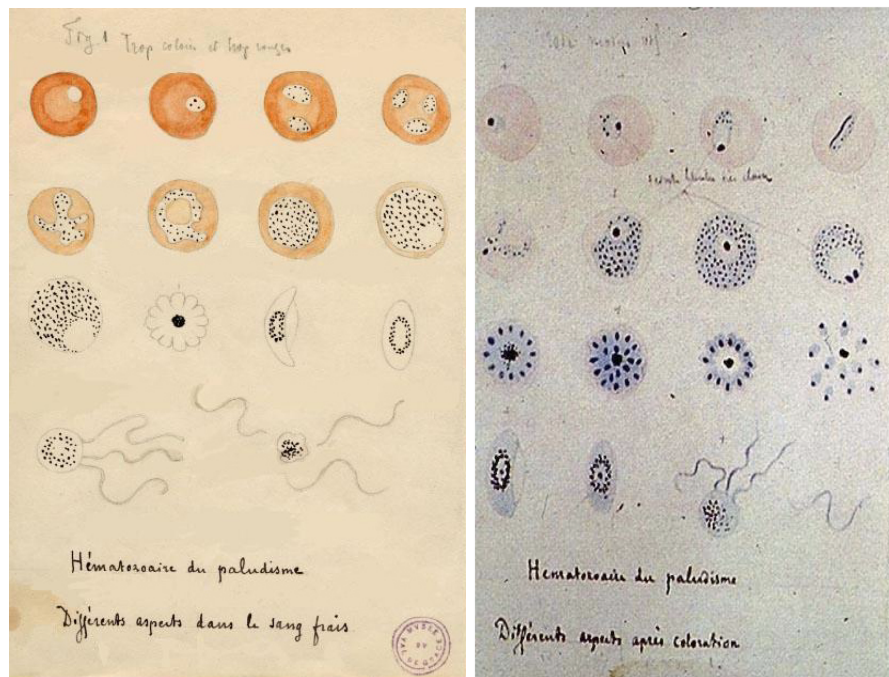 Fig. 1 Trop colorés et trop rouges
Hématozoaire du paludisme
Différents aspects dans le sang frais.
Hématozoaire du paludisme
Différents aspects après coloration